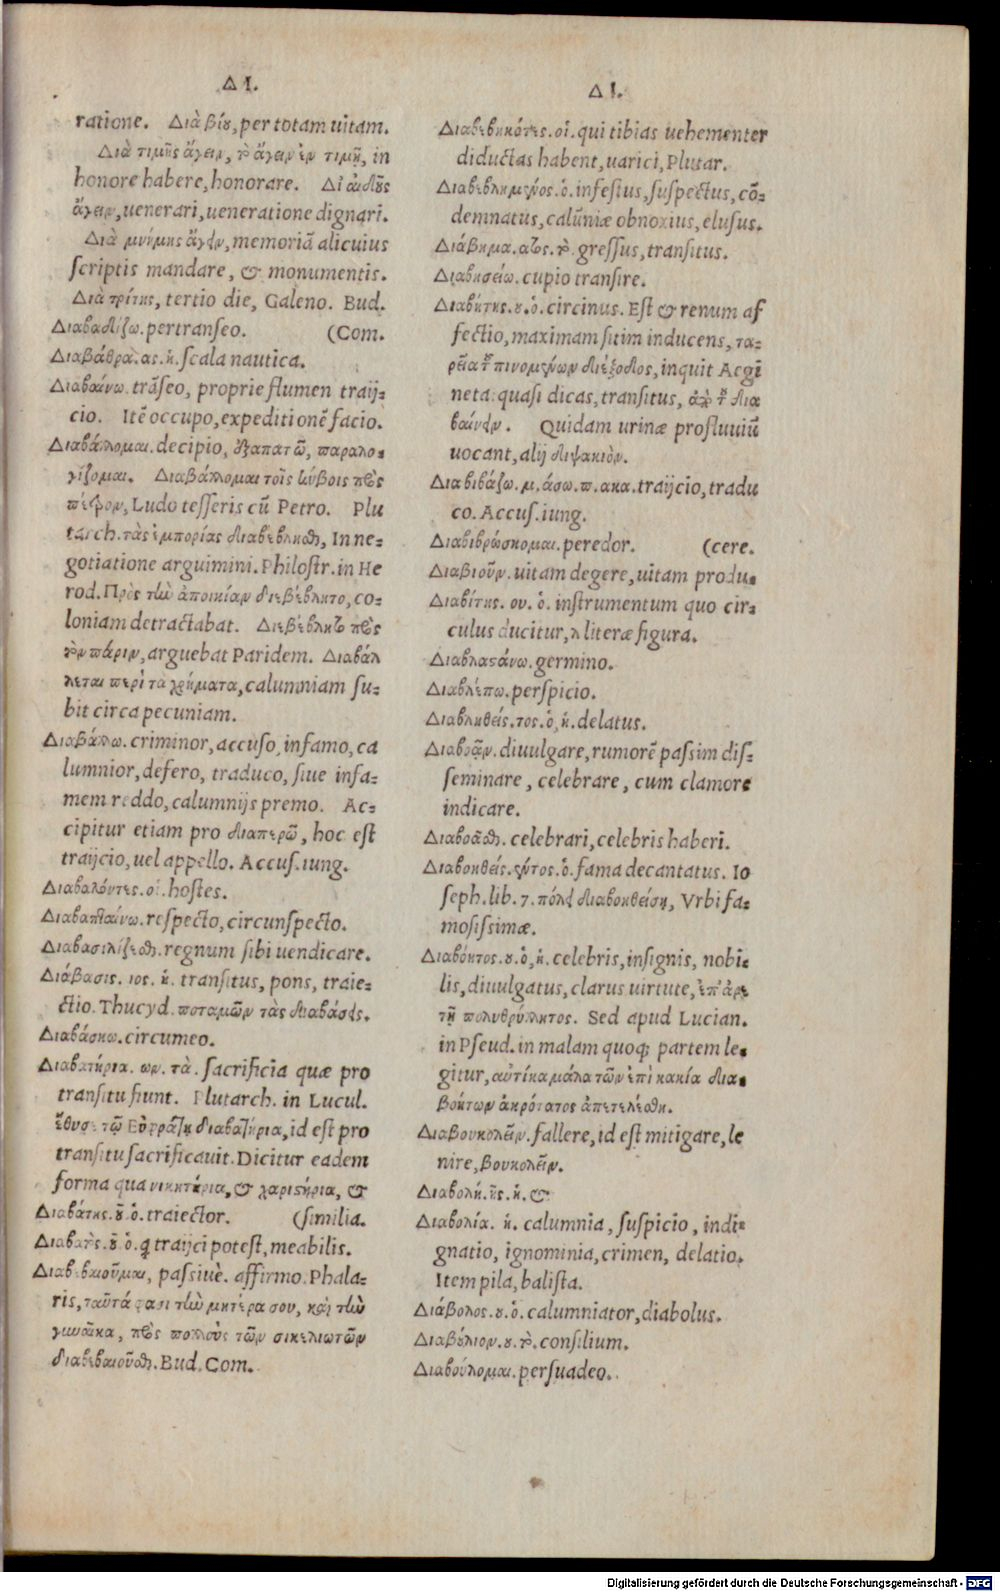 Δ I.
ratione. Διὰ βίου, per totam uitam.
Διὰ τιμῆς ἄγειν, τὸ ἄγειν ἐν τιμῇ, in
honore habere, honorare. Δι' αἰδοῦς
ἄγειν, uenerari, ueneratione dignari.
Διὰ μνήμης ἄγειν, memoriã alicuius
scriptis mandare, & monumentis.
Διὰ τρίτης, tertio die, Galeno. Bud.
Διαβαδίζω. pertranseo. (Com.
Διαβάθρα. ας. ἡ. scala nautica.
Διαβαίνω. trãseo, proprie flumen traij-
cio. Itẽ occupo, expeditionẽ facio.
Διαβάλλομαι. decipio, ἐξαπατῶ, παραλο-
γίζομαι. Διαβάλλομαι τοῖς κύβοις πρὸς
πέτρον, Ludo tesseris cũ Petro. Plu
tarch. τὰς ἐμπορίας διαβέβλησθε, In ne-
gotiatione arguimini. Philostr. in He
rod. Πρὸς τὴν ἀποικίαν διεβέβλητο, co-
loniam detractabat. Διεβέβλητο πρὸς
τὸν πάριν, arguebat Paridem. Διαβάλ
λεται περὶ τὰ χρήματα, calumniam su-
bit circa pecuniam.
Διαβάλλω. criminor, accuso, infamo, ca
lumnior, defero, traduco, siue infa-
mem reddo, calumnijs premo. Ac-
cipitur etiam pro διαπερῶ, hoc est
traijcio, uel appello. Accus. iung.
Διαβαλόντες. οἱ. hostes.
Διαβαπταίνω. respecto, circunspecto.
Διαβασιλίζεσθ. regnum sibi uendicare.
Διάβασις. ιος. ἡ. transitus, pons, traie-
ctio. Thucyd. ποταμῶν τὰς διαβάσεις.
Διαβάσκω. circumeo.
Διαβατήρια. ων. τὰ. sacrificia quæ pro
transitu fiunt. Plutarch. in Lucul.
ἔθυσε τῷ Εὐφράτῃ διαβατήρια, id est pro
transitu sacrificauit. Dicitur eadem
forma qua νικητήρια, & χαριστήρια, &
Διαβάτης. ου. ὁ. traiector. (similia.
Διαβατὸς. οῦ. ὁ. q traijci potest, meabilis.
Διαβεβαιοῦμαι, passiuè. affirmo. Phala-
ris, ταῦτά φασι τὴν μητέρα σου, καὶ τὴν
γυναῖκα, πρὸς πολλοὺς τῶν σικελιωτῶν
διαβεβαιοῦσθ. Bud. Com.
Δ I.
Διαβεβηκότες. οἱ. qui tibias uehementer
diductas habent, uarici, Plutar.
Διαβεβλημένος. ὁ. infestus, suspectus, cõ-
demnatus, calũniæ obnoxius, elusus.
Διάβημα. ατος. τὸ. gressus, transitus.
Διαβησείω. cupio transire.
Διαβήτης. ου. ὁ. circinus. Est & renum af
fectio, maximam sitim inducens, τα-
χεῖα τῶν πινομένων διέξοδος, inquit Aegi
neta: quasi dicas, transitus, ἀπὸ τοῦ δια
βαίνειν. Quidam urinæ profluuiũ
uocant, alij διψακιὸν.
Διαβιβάζω. μ. άσω. π. ακα. traijcio, tradu
co. Accus. iung.
Διαβιβρώσκομαι. peredor. (cere.
Διαβιοῦν. uitam degere, uitam produ-
Διαβίτης. ου. ὁ. instrumentum quo cir-
culus ducitur, λ literæ figura.
Διαβλαστάνω. germino.
Διαβλέπω. perspicio.
Διαβληθείς. τος. ὁ, ἡ. delatus.
Διαβοᾶν. diuulgare, rumorẽ passim dis-
seminare, celebrare, cum clamore
indicare.
Διαβοᾶσθ. celebrari, celebris haberi.
Διαβοηθείς. έντος. ὁ. fama decantatus. Io
seph. lib. 7. πόλει διαβοηθείσῃ, Vrbi fa-
mosissimæ.
Διαβόητος. ου. ὁ, ἡ. celebris, insignis, nobi-
lis, diuulgatus, clarus uirtute, ἐπ' ἀρε
τῇ πολυθρύλλητος. Sed apud Lucian.
in Pseud. in malam quoq; partem le-
gitur, αὐτίκα μάλα τῶν ἐπὶ κακία δια-
βοήτων ἀκρότατος ἀπετελέσθη.
Διαβουκολεῖν. fallere, id est mitigare, le
nire, βουκολεῖν.
Διαβολή. ῆς. ἡ. &
Διαβολία. ἡ. calumnia, suspicio, indi-
gnatio, ignominia, crimen, delatio.
Item pila, balista.
Διάβολος. ου. ὁ. calumniator, diabolus.
Διαβούλιον. ου. τὸ. consilium.
Διαβούλομαι. persuadeo.
Digitalisierung gefördert durch die Deutsche Forschungsgemeinschaft - DFG